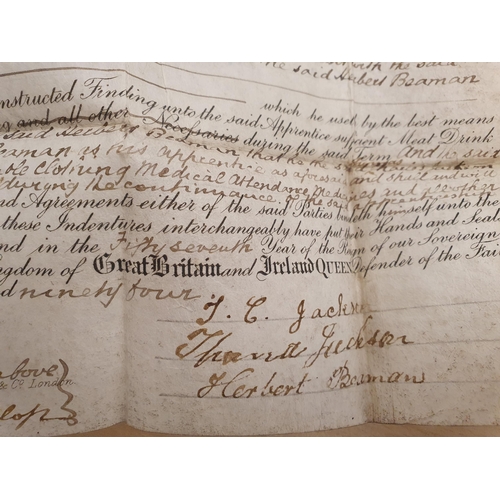 with the said
he said Herbert Beaman
onstructed Finding unto the said Apprentice sufficient Meat Drink
which he useth by the best means
and all other Necessaries during the said Term And the said
Beaman as his apprentice as aforesaid and shall and will
ble Clothing Medical Attendance Medicines and all other
during the continuance of the said
nd Agreements either of the said Parties bindeth himself unto the
these Indentures interchangeably have put their Hands and Seal
nd in the Fifty seventh Year of the Reign of our Sovereign
ngdom of Great Britain and Ireland QUEEN Defender of the Fai
d ninety four
T. C. Jackson
Jackson
Herbert Beaman
bove)
& Co. London